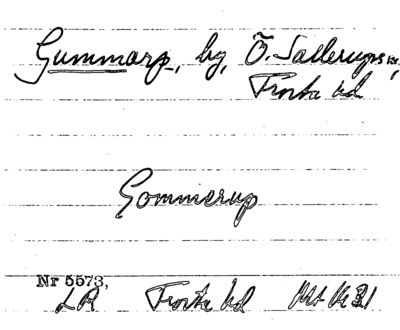 Gummarp, by, Ö. Sallerups sn,
Frosta hd
Gommerup
Nr 5573,
LR Frosta hd